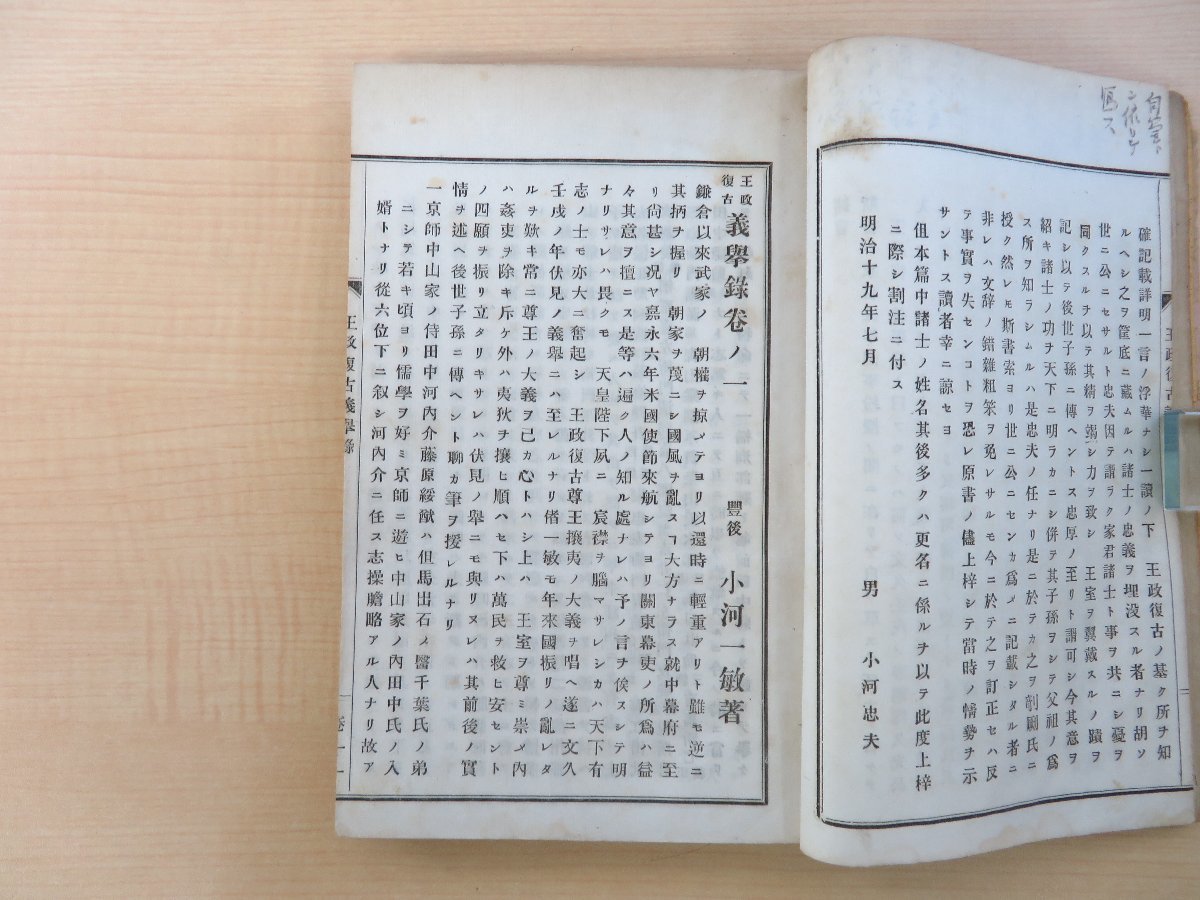 確記載詳明一言ノ浮華ナシ一讀ノ下　王政復古ノ基ク所ヲ知
ルヘシ之ヲ筐底ニ藏ムルハ諸士ノ忠義ヲ埋沒スル者ナリ胡ソ
世ニ公ニセサルト忠夫因テ謂ラク家君諸士ト事ヲ共ニシ憂ヲ
同クスルヲ以テ其精ヲ竭シ力ヲ致シ　王室ヲ翼戴スルノ蹟ヲ
記シ以テ後世子孫ニ傳ヘントス忠厚ノ至リト謂可シ今其意ヲ
紹キ諸士ノ功ヲ天下ニ明ラカニシ併テ其子孫ヲシテ父祖ノ爲
ス所ヲ知ラシムルハ是忠夫ノ任ナリ是ニ於テカ之ヲ剞劂氏ニ
授ク然レモ斯書索ヨリ世ニ公ニセンカ爲メニ記載シタル者ニ
非レハ文辞ノ錯雜粗笨ヲ免レサルモ今ニ於テ之ヲ訂正セハ反
テ事實ヲ失センコトヲ恐レ原書ノ儘上梓シテ當時ノ情勢ヲ示
サントス讀者幸ニ諒セヨ
但本篇中諸士ノ姓名其後多クハ更名ニ係ルヲ以テ此度上梓
ニ際シ割注ニ付ス
明治十九年七月　男　小河忠夫
王政復古
王政復古義擧錄卷ノ一
豐後　小河一敏著
鎌倉以來武家ノ　朝權ヲ掠メテヨリ以還時ニ輕重アリト雖モ逆ニ
其柄ヲ握リ　朝家ヲ蔑ニシ國風ヲ亂スヿ大方ナラス就中幕府ニ至
リ尙甚シ况ヤ嘉永六年米國使節來航シテヨリ關東幕吏ノ所爲ハ益
々其意ヲ擅ニス是等ハ遍ク人ノ知ル處ナレハ予ノ言ヲ俟スシテ明
ナリサレハ畏クモ　天皇陛下夙ニ　宸襟ヲ腦マサレシカハ天下有
志ノ士モ亦大ニ奮起シ　王政復古尊王攘夷ノ大義ヲ唱ヘ遂ニ文久
壬戌ノ年伏見ノ義擧ニハ至レルナリ偖一敏モ年來國振リノ亂レタ
ルヲ歎キ常ニ尊王ノ大義ヲ己カ心トハシ上ハ　王室ヲ尊ミ崇メ內
ハ姦吏ヲ除キ斥ケ外ハ夷狄ヲ攘ヒ順ハセ下ハ萬民ヲ救ヒ安セント
ノ四願ヲ振リ立タリキサレハ伏見ノ擧ニモ與リヌレハ其前後ノ實
情ヲ述ヘ後世子孫ニ傳ヘント聊カ筆ヲ援レルナリ
一京師中山家ノ侍田中河內介藤原綏猷ハ但馬出石ノ醫千葉氏ノ弟
ニシテ若キ頃ヨリ儒學ヲ好ミ京師ニ遊ヒ中山家ノ內田中氏ノ入
婿トナリ從六位下ニ叙シ河內介ニ任ス志操膽略アル人ナリ故ア
王政復古義擧錄
卷一　一